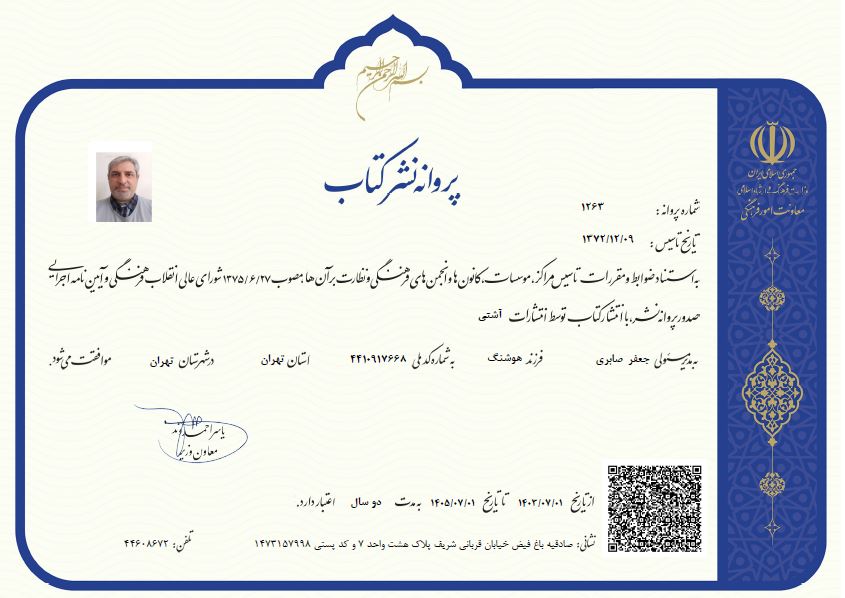 بسم الله الرحمن الرحیم
جمهوری اسلامی ایران
وزارت فرهنگ و ارشاد اسلامی
معاونت امور فرهنگی
پروانه نشر کتاب
شماره پروانه: ۱۲۶۳
تاریخ تاسیس: ۱۳۷۲/۱۲/۰۹
به استناد ضوابط و مقررات تاسیس مراکز، موسسات، کانون ها و انجمن های فرهنگی و نظارت بر آن ها، مصوب ۱۳۷۵/۶/۲۷ شورای عالی انقلاب فرهنگی و آیین نامه اجرایی
صدور پروانه نشر، با انتشار کتاب توسط انتشارات آشتی
به مدیر مسئولی جعفر صابری فرزند هوشنگ به شماره کد ملی ۴۴۱۰۹۱۷۶۶۸ استان تهران در شهرستان تهران موافقت می شود.
یاسر احمدوند
معاون وزیر
از تاریخ ۱۴۰۳/۰۷/۰۱ تا تاریخ ۱۴۰۵/۰۷/۰۱ به مدت دو سال اعتبار دارد.
نشانی: صادقیه باغ فیض خیابان قربانی شریف پلاک هشت واحد ۷ و کد پستی ۱۴۷۳۱۵۷۹۹۸ تلفن: ۴۴۶۰۸۶۷۲